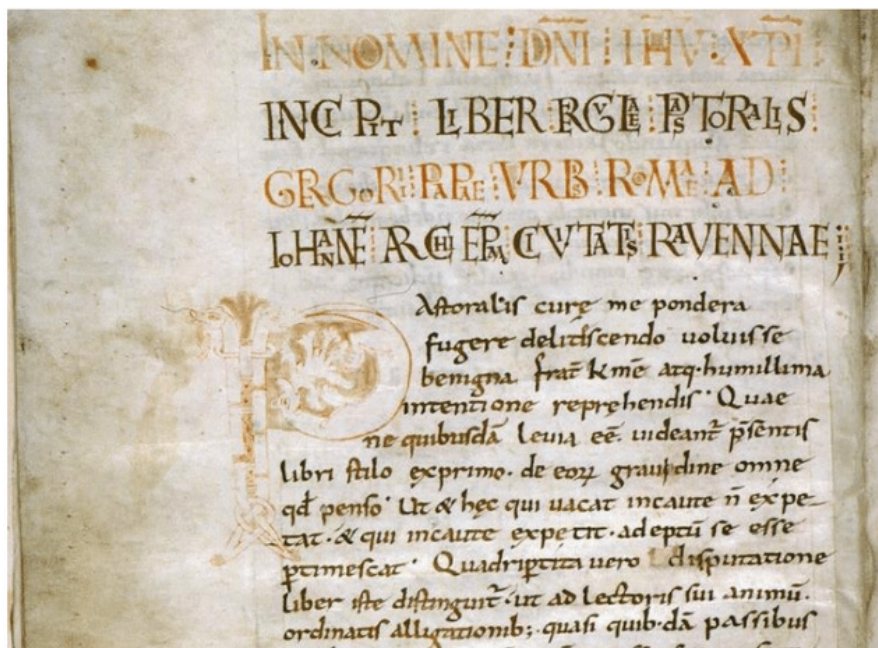 IN NOMINE DNI IHV XPI
INCIPIT LIBER RGVLAE PASTORALIS
GREGORII PAPAE VRBIS ROMAE AD
IOHANNE ARCHI EPM CIVITATIS RAVENNAE;
Pastoralis curę me pondera
fugere delitiscendo uoluisse
benigna frat̄ Kme atq. humillima
intentione reprehendis. Quae
ne quibusdā leuia eē. uideant̄ p̄sentis
libri stilo exprimo. de eoꝝ grauedine omne
qd̄ penso. Ut & hęc qui uacat incaute n̄ expe-
tat. & qui incaute expetit. adeptū se esse
ꝑtimescat. Quadriꝑtita uero disputatione
liber iste distinguit̄. ut ad lectoris sui animū.
ordinatis alligationib; quasi quib.dā passibus